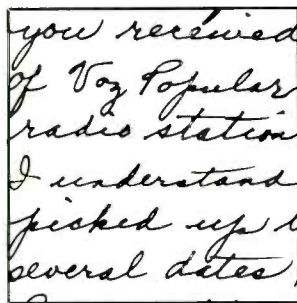 you received
of Voz Popular
radio station
I understand
picked up
several dates